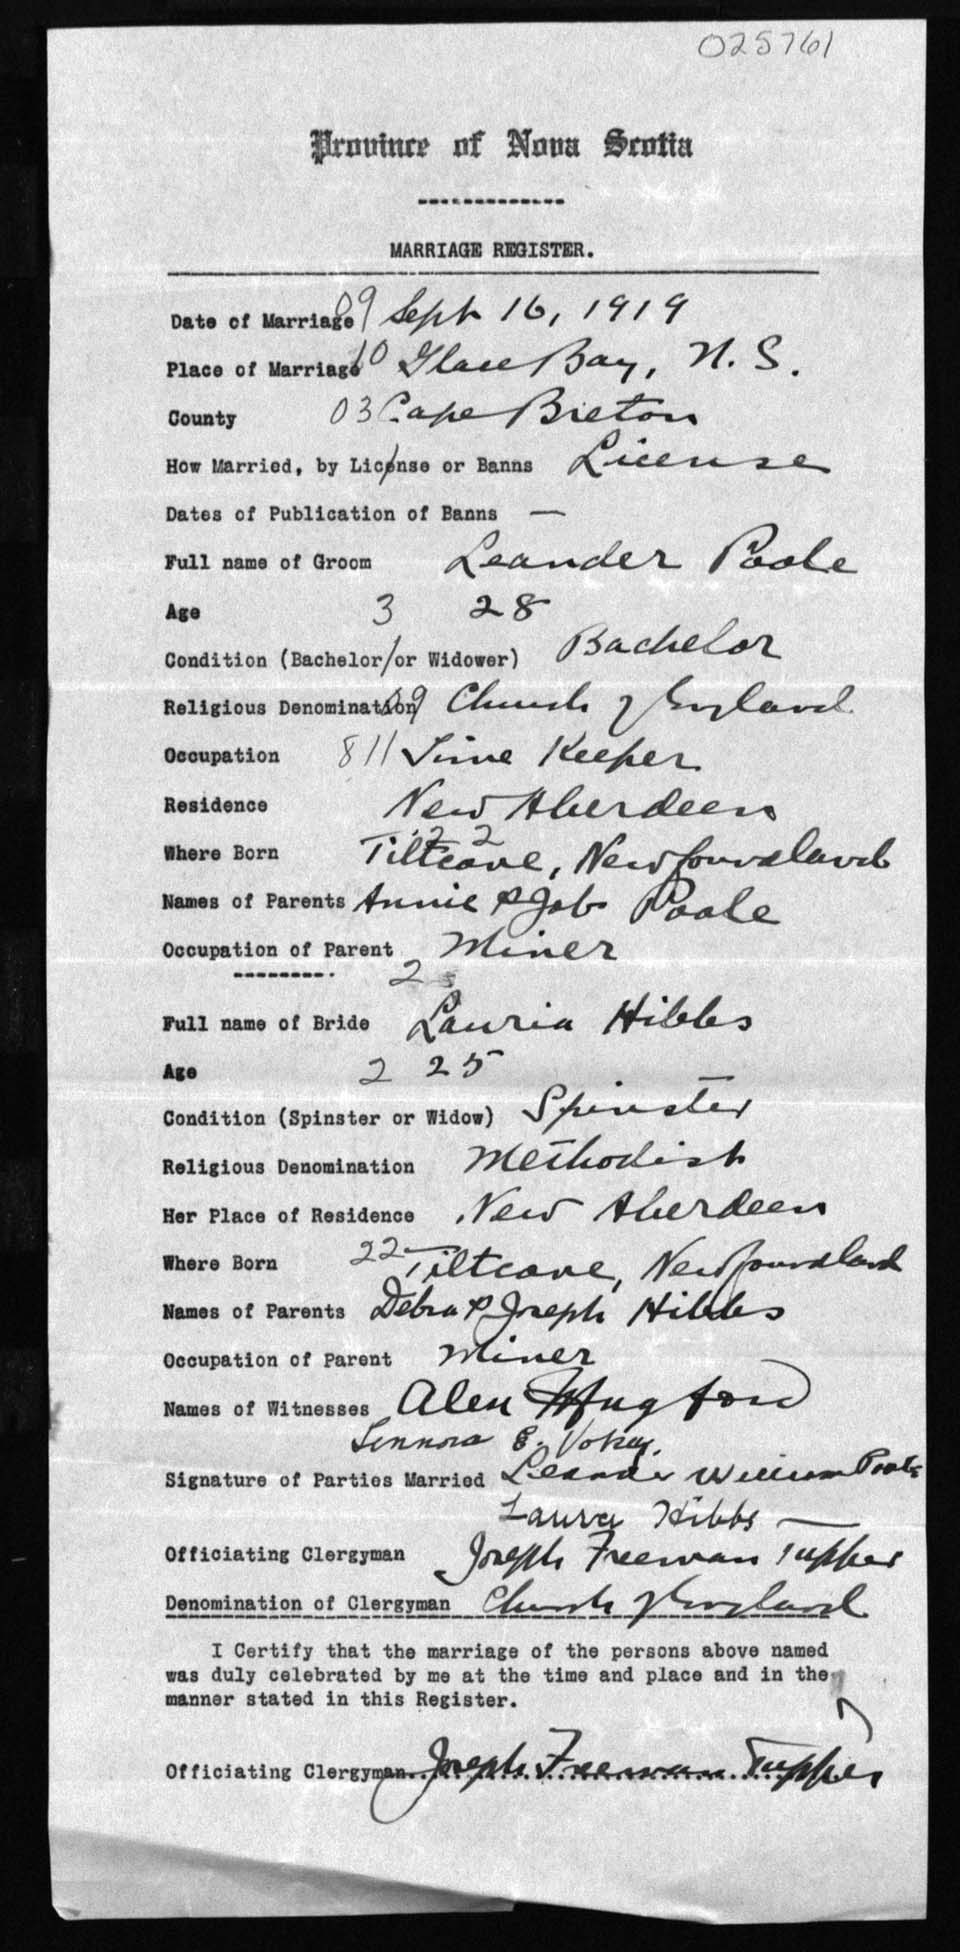 025761
Province of Nova Scotia
MARRIAGE REGISTER.
Date of Marriage 09 Sept 16, 1919
Place of Marriage 10 Glace Bay, N. S.
County 03 Cape Breton
How Married, by License or Banns License
Dates of Publication of Banns —
Full name of Groom Leander Poole
Age 3 28
Condition (Bachelor/or Widower) Bachelor
Religious Denomination 09 Church of England
Occupation 811 Time Keeper
Residence New Aberdeen
Where Born 22 Tiltcove, Newfoundland
Names of Parents Annie & Job Poole
Occupation of Parent Miner
2
Full name of Bride Lauria Hibbs
Age 2 25
Condition (Spinster or Widow) Spinster
Religious Denomination Methodist
Her Place of Residence New Aberdeen
Where Born 22 Tiltcove, Newfoundland
Names of Parents Debra & Joseph Hibbs
Occupation of Parent Miner
Names of Witnesses Alen Mugford
Lennora E. Vokey.
Signature of Parties Married Leander William Poole
Laura Hibbs
Officiating Clergyman Joseph Freeman Tupper
Denomination of Clergyman Church of England
I Certify that the marriage of the persons above named
was duly celebrated by me at the time and place and in the
manner stated in this Register.
Officiating Clergyman Joseph Freeman Tupper